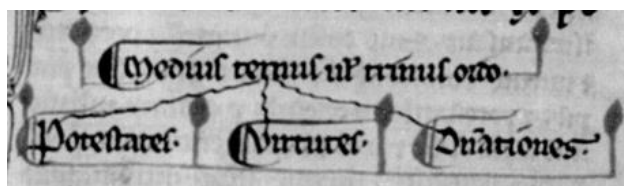 Medius ternus ul' trinus ordo.
Potestates. Virtutes. Dn̄ationes.